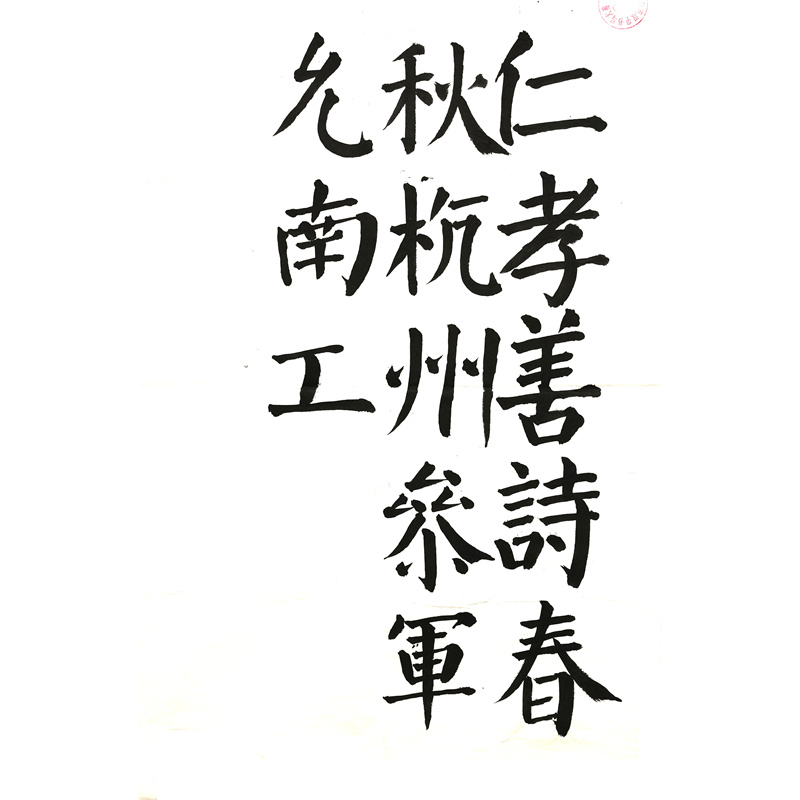 仁孝善詩春
秋杭州參軍
允南工